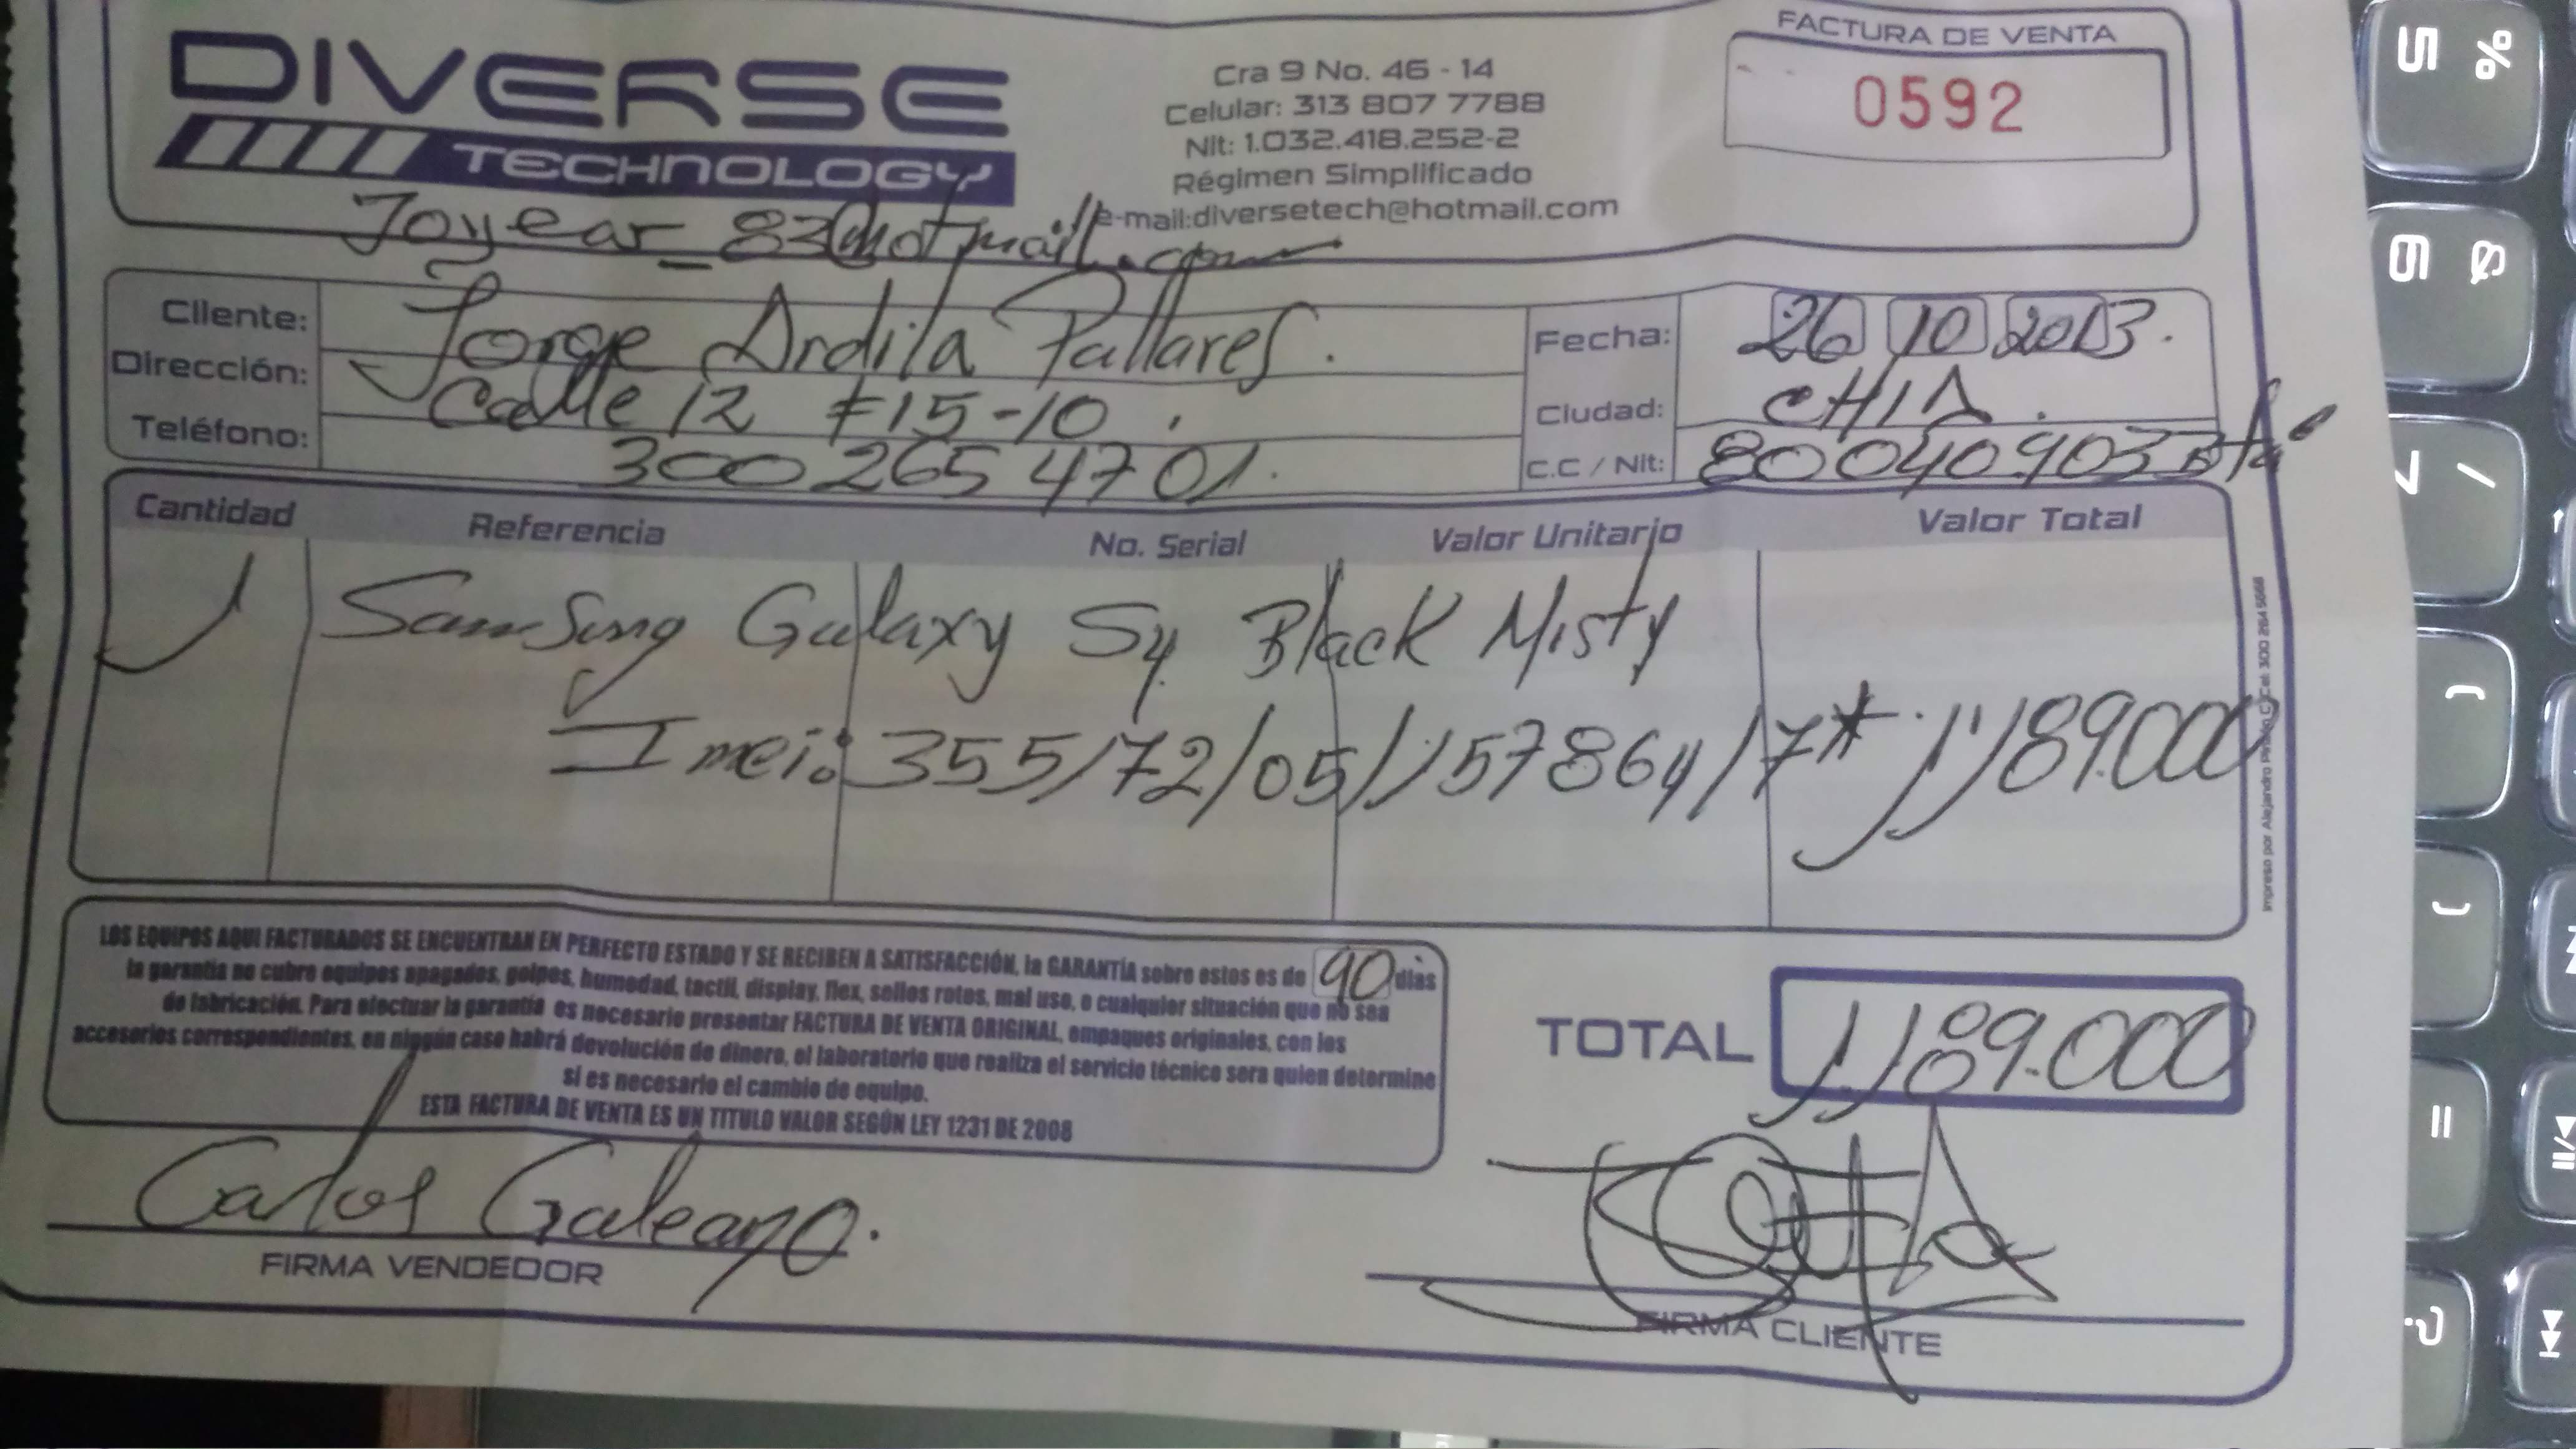 DIVERSE
TECHNOLOGY
Cra 9 No. 46 - 14
Celular: 313 807 7788
Nit: 1.032.418.252-2
Régimen Simplificado
e-mail:diversetech@hotmail.com
FACTURA DE VENTA
0592
Joyear_83@hotmail.com
Cliente: Jorge Ardila Pallares.
Fecha: 26 10 2013.
Dirección: Calle 12 #15-10.
Ciudad: CHIA.
Teléfono: 300 265 4701.
C.C / Nit: 80040903 Btá
Cantidad Referencia No. Serial Valor Unitario Valor Total
1 Samsung Galaxy S4 Black Misty
Imei: 355/72/05/1157864/7* 1'189.000
LOS EQUIPOS AQUI FACTURADOS SE ENCUENTRAN EN PERFECTO ESTADO Y SE RECIBEN A SATISFACCIÓN, la GARANTÍA sobre estos es de 90 dias
la garantía no cubre equipos apagados, golpes, humedad, tactil, display, flex, sellos rotos, mal uso, o cualquier situación que no sea
de fabricación. Para efectuar la garantía es necesario presentar FACTURA DE VENTA ORIGINAL, empaques originales, con los
accesorios correspondientes, en ningún caso habrá devolución de dinero, el laboratorio que realiza el servicio técnico sera quien determine
si es necesario el cambio de equipo.
ESTA FACTURA DE VENTA ES UN TITULO VALOR SEGÚN LEY 1231 DE 2008
TOTAL 1'189.000
Carlos Galeano.
FIRMA VENDEDOR
FIRMA CLIENTE
Impreso por Alejandro Cel: 300 264 5668
% 5
& 6
/ 7
(
)
=
?